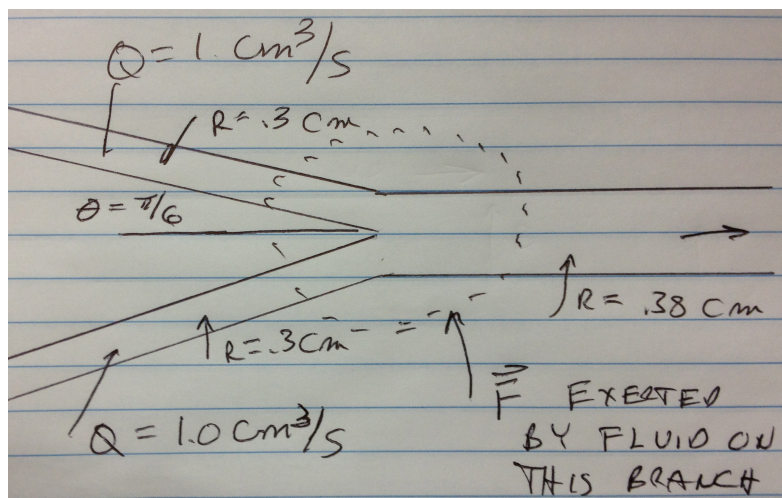 Q = 1. cm³/s
R = .3 cm
θ = π/6
R = .38 cm
R = .3 cm
Q = 1.0 cm³/s
F EXERTED
BY FLUID ON
THIS BRANCH